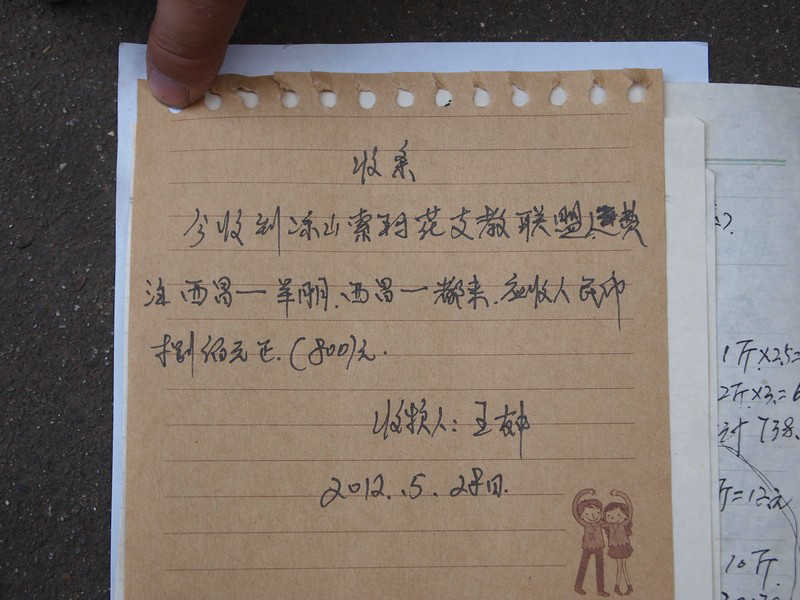 收条
今收到凉山索玛花支教联盟运费
注西昌一羊圈.西昌一都来.应收人民币
捌佰元正.(800)元.
收款人:王友中
2012.5.28日.
1斤×25=
2斤×3=6
计738.
斤=12元
10斤.